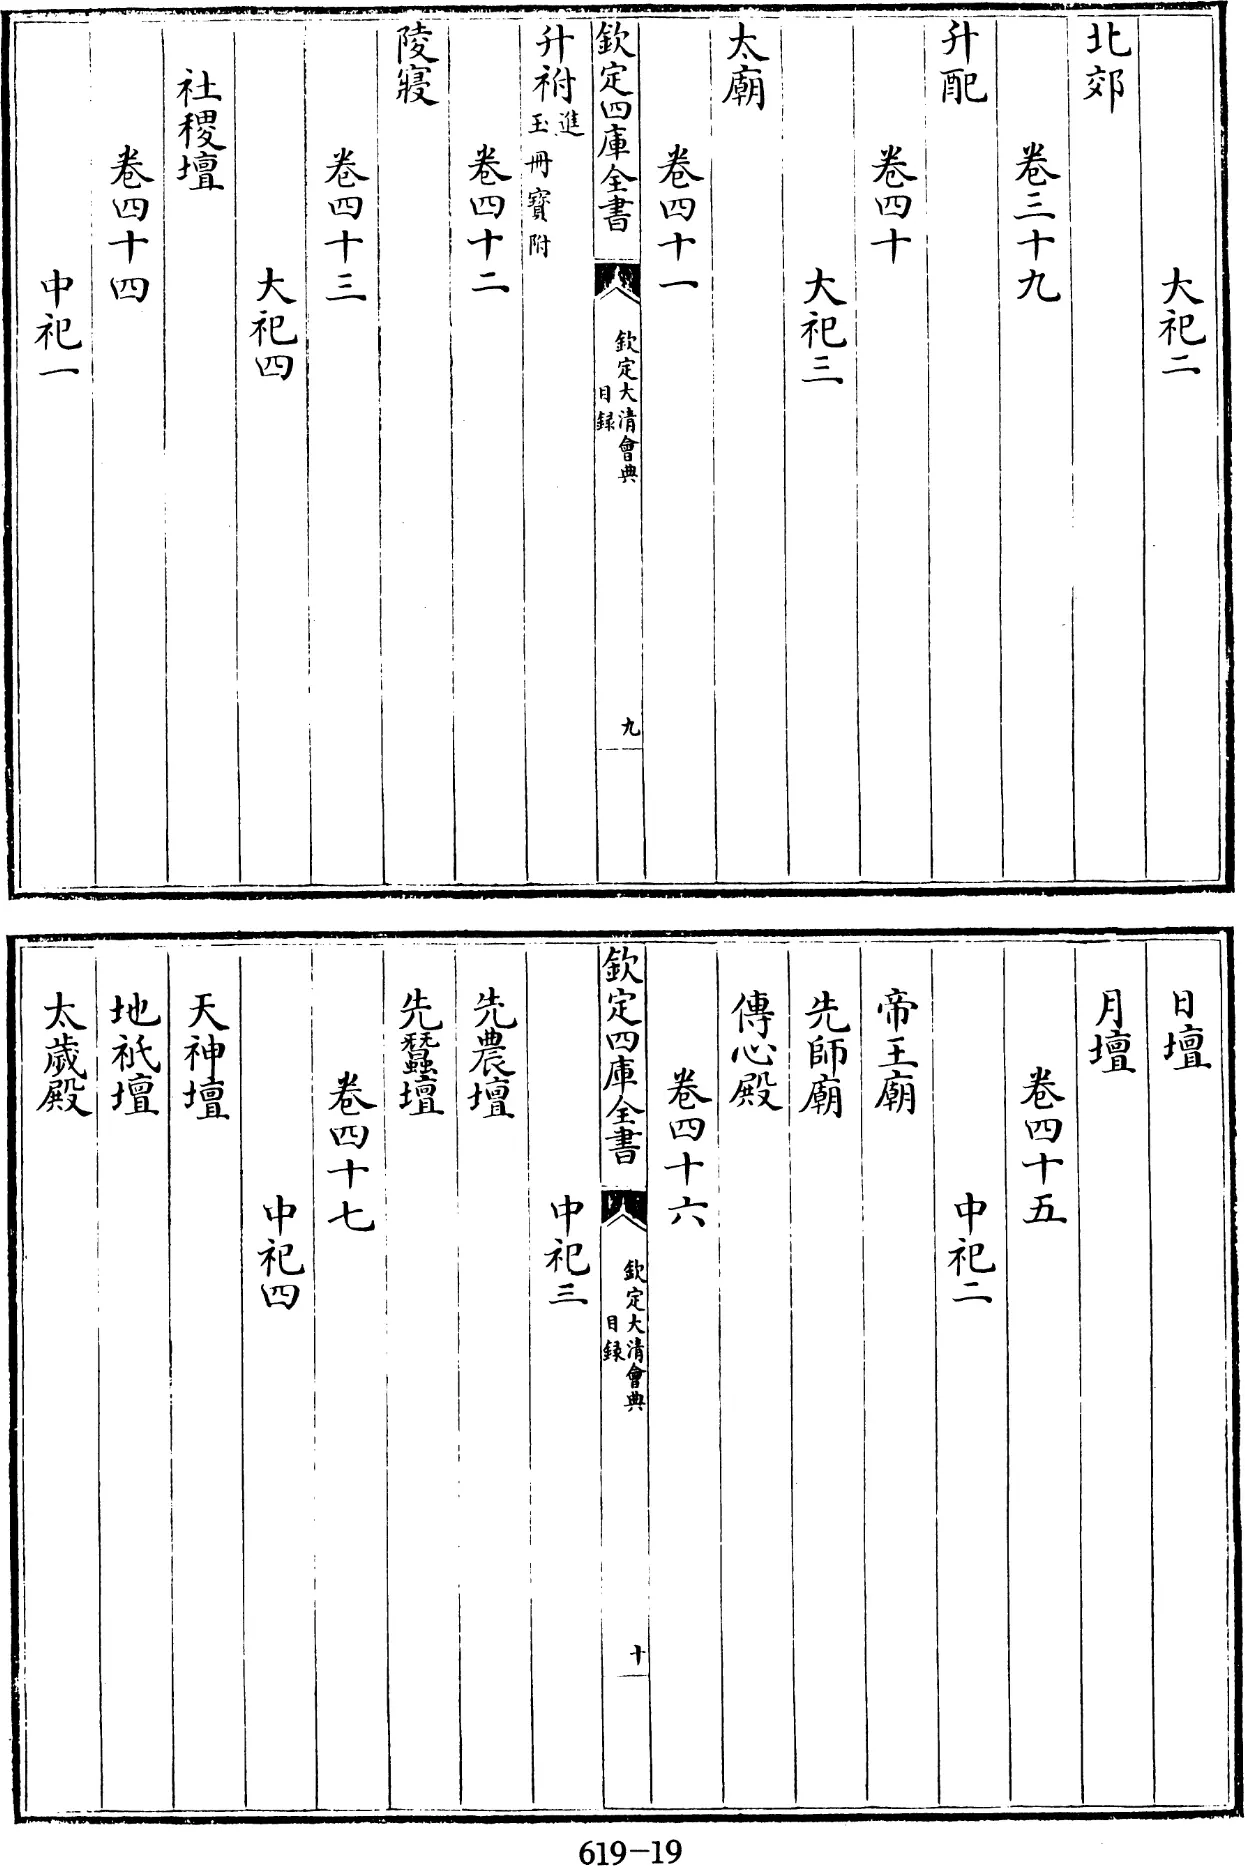 大祀二
北郊
卷三十九
升配
卷四十
大祀三
太廟
卷四十一
欽定四庫全書
欽定大清會典
目録
九
升祔進
玉冊寶附
卷四十二
陵寢
卷四十三
大祀四
社稷壇
卷四十四
中祀一
日壇
月壇
卷四十五
中祀二
帝王廟
先師廟
傳心殿
卷四十六
欽定四庫全書
欽定大清會典
目録
十
中祀三
先農壇
先蠶壇
卷四十七
中祀四
天神壇
地祇壇
太歲殿
619-19